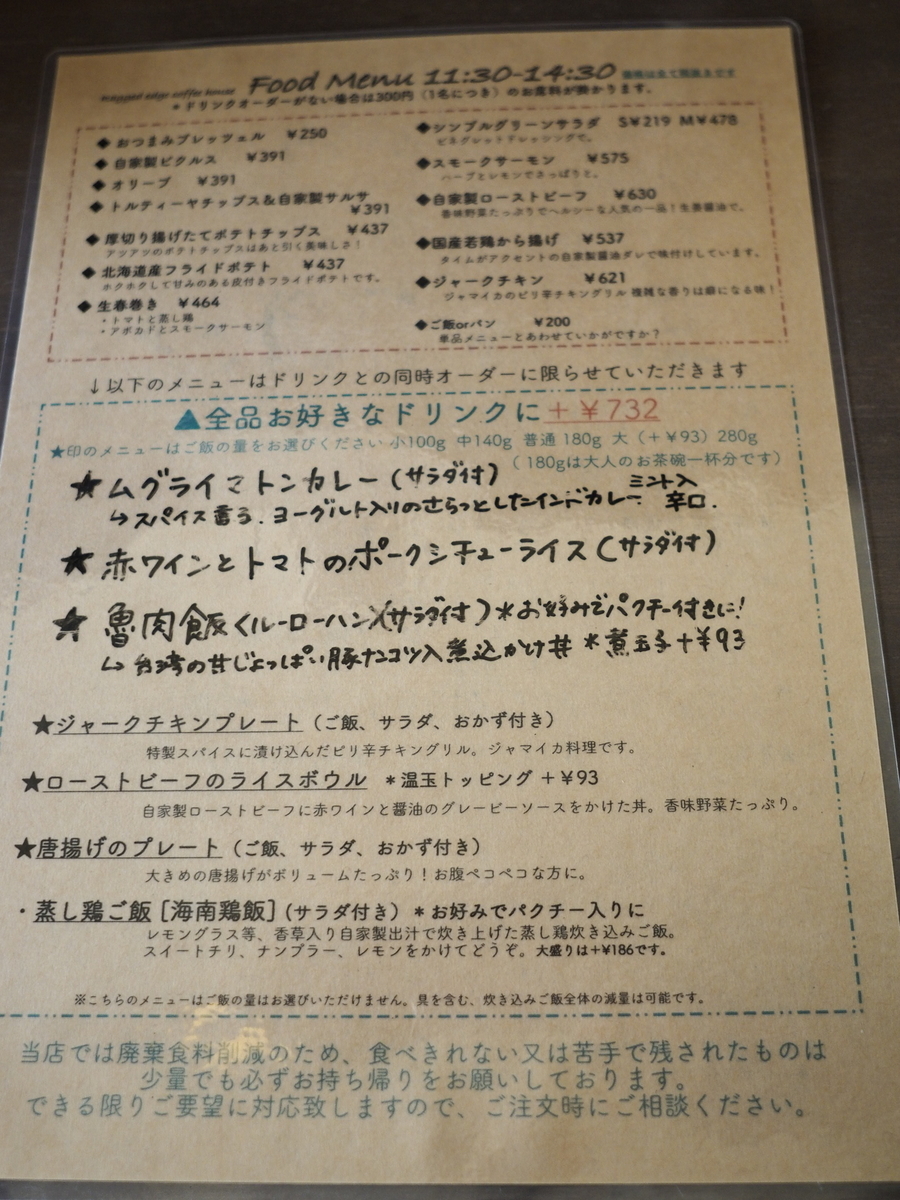 Food Menu 11:30-14:30 価格は全て税抜きです
rugged edge coffee house
＊ドリンクオーダーがない場合は300円（1名につき）のお席料が掛かります。
◆おつまみプレッツェル ￥250
◆自家製ピクルス ￥391
◆オリーブ ￥391
◆トルティーヤチップス&自家製サルサ
￥391
◆厚切り揚げたてポテトチップス ￥437
アツアツのポテトチップスはあと引く美味しさ！
◆北海道産フライドポテト ￥437
ホクホクして甘みのある皮付きフライドポテトです。
◆生春巻き ￥464
・トマトと蒸し鶏
・アボカドとスモークサーモン
◆シンプルグリーンサラダ S￥219 M￥478
ビネグレットドレッシングで。
◆スモークサーモン ￥575
ハーブとレモンでさっぱりと。
◆自家製ローストビーフ ￥630
香味野菜たっぷりでヘルシーな人気の一品！生姜醤油で。
◆国産若鶏から揚げ ￥537
タイムがアクセントの自家製醤油ダレで味付けしています。
◆ジャークチキン ￥621
ジャマイカのピリ辛チキングリル 複雑な香りは癖になる味！
◆ご飯orパン ￥200
単品メニューとあわせていかがですか？
↓以下のメニューはドリンクとの同時オーダーに限らせていただきます
▲全品お好きなドリンクに＋￥732
★印のメニューはご飯の量をお選びください 小100g 中140g 普通 180g 大（＋￥93）280g
（180gは大人のお茶碗一杯分です）
★ムグライマトンカレー（サラダ付）
↳スパイス香る、ヨーグルト入りのさらっとしたインドカレー。ミント入 辛口.
★赤ワインとトマトのポークシチューライス（サラダ付）
★魯肉飯<ルーローハン>（サラダ付）＊お好みでパクチー付きに!
↳台湾の甘じょっぱい豚ナンコツ入煮込かけ丼 ＊煮玉子＋￥93
★ジャークチキンプレート（ご飯、サラダ、おかず付き）
特製スパイスに漬け込んだピリ辛チキングリル。ジャマイカ料理です。
★ローストビーフのライスボウル ＊温玉トッピング＋￥93
自家製ローストビーフに赤ワインと醤油のグレービーソースをかけた丼。香味野菜たっぷり。
★唐揚げのプレート（ご飯、サラダ、おかず付き）
大きめの唐揚げがボリュームたっぷり！お腹ペコペコな方に。
・蒸し鶏ご飯［海南鶏飯］（サラダ付き）＊お好みでパクチー入りに
レモングラス等、香草入り自家製出汁で炊き上げた蒸し鶏炊き込みご飯。
スイートチリ、ナンプラー、レモンをかけてどうぞ。大盛りは＋￥186です。
※こちらのメニューはご飯の量はお選びいただけません。具を含む、炊き込みご飯全体の減量は可能です。
当店では廃棄食料削減のため、食べきれない又は苦手で残されたものは
少量でも必ずお持ち帰りをお願いしております。
できる限りご要望に対応致しますので、ご注文時にご相談ください。